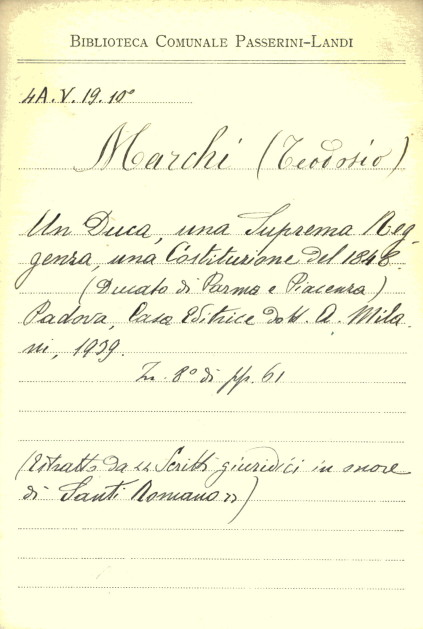 BIBLIOTECA COMUNALE PASSERINI-LANDI
4A.V.19.10°
Marchi (Teodosio)
Un Duca, una Suprema Reg-
genza, una Costituzione del 1848.
(Ducato di Parma e Piacenza)
Padova, Casa Editrice dott. A. Mila-
ni, 1939.
In 8° di pp. 61
(Estratto da "Scritti giuridici in onore
di Santi Romano")